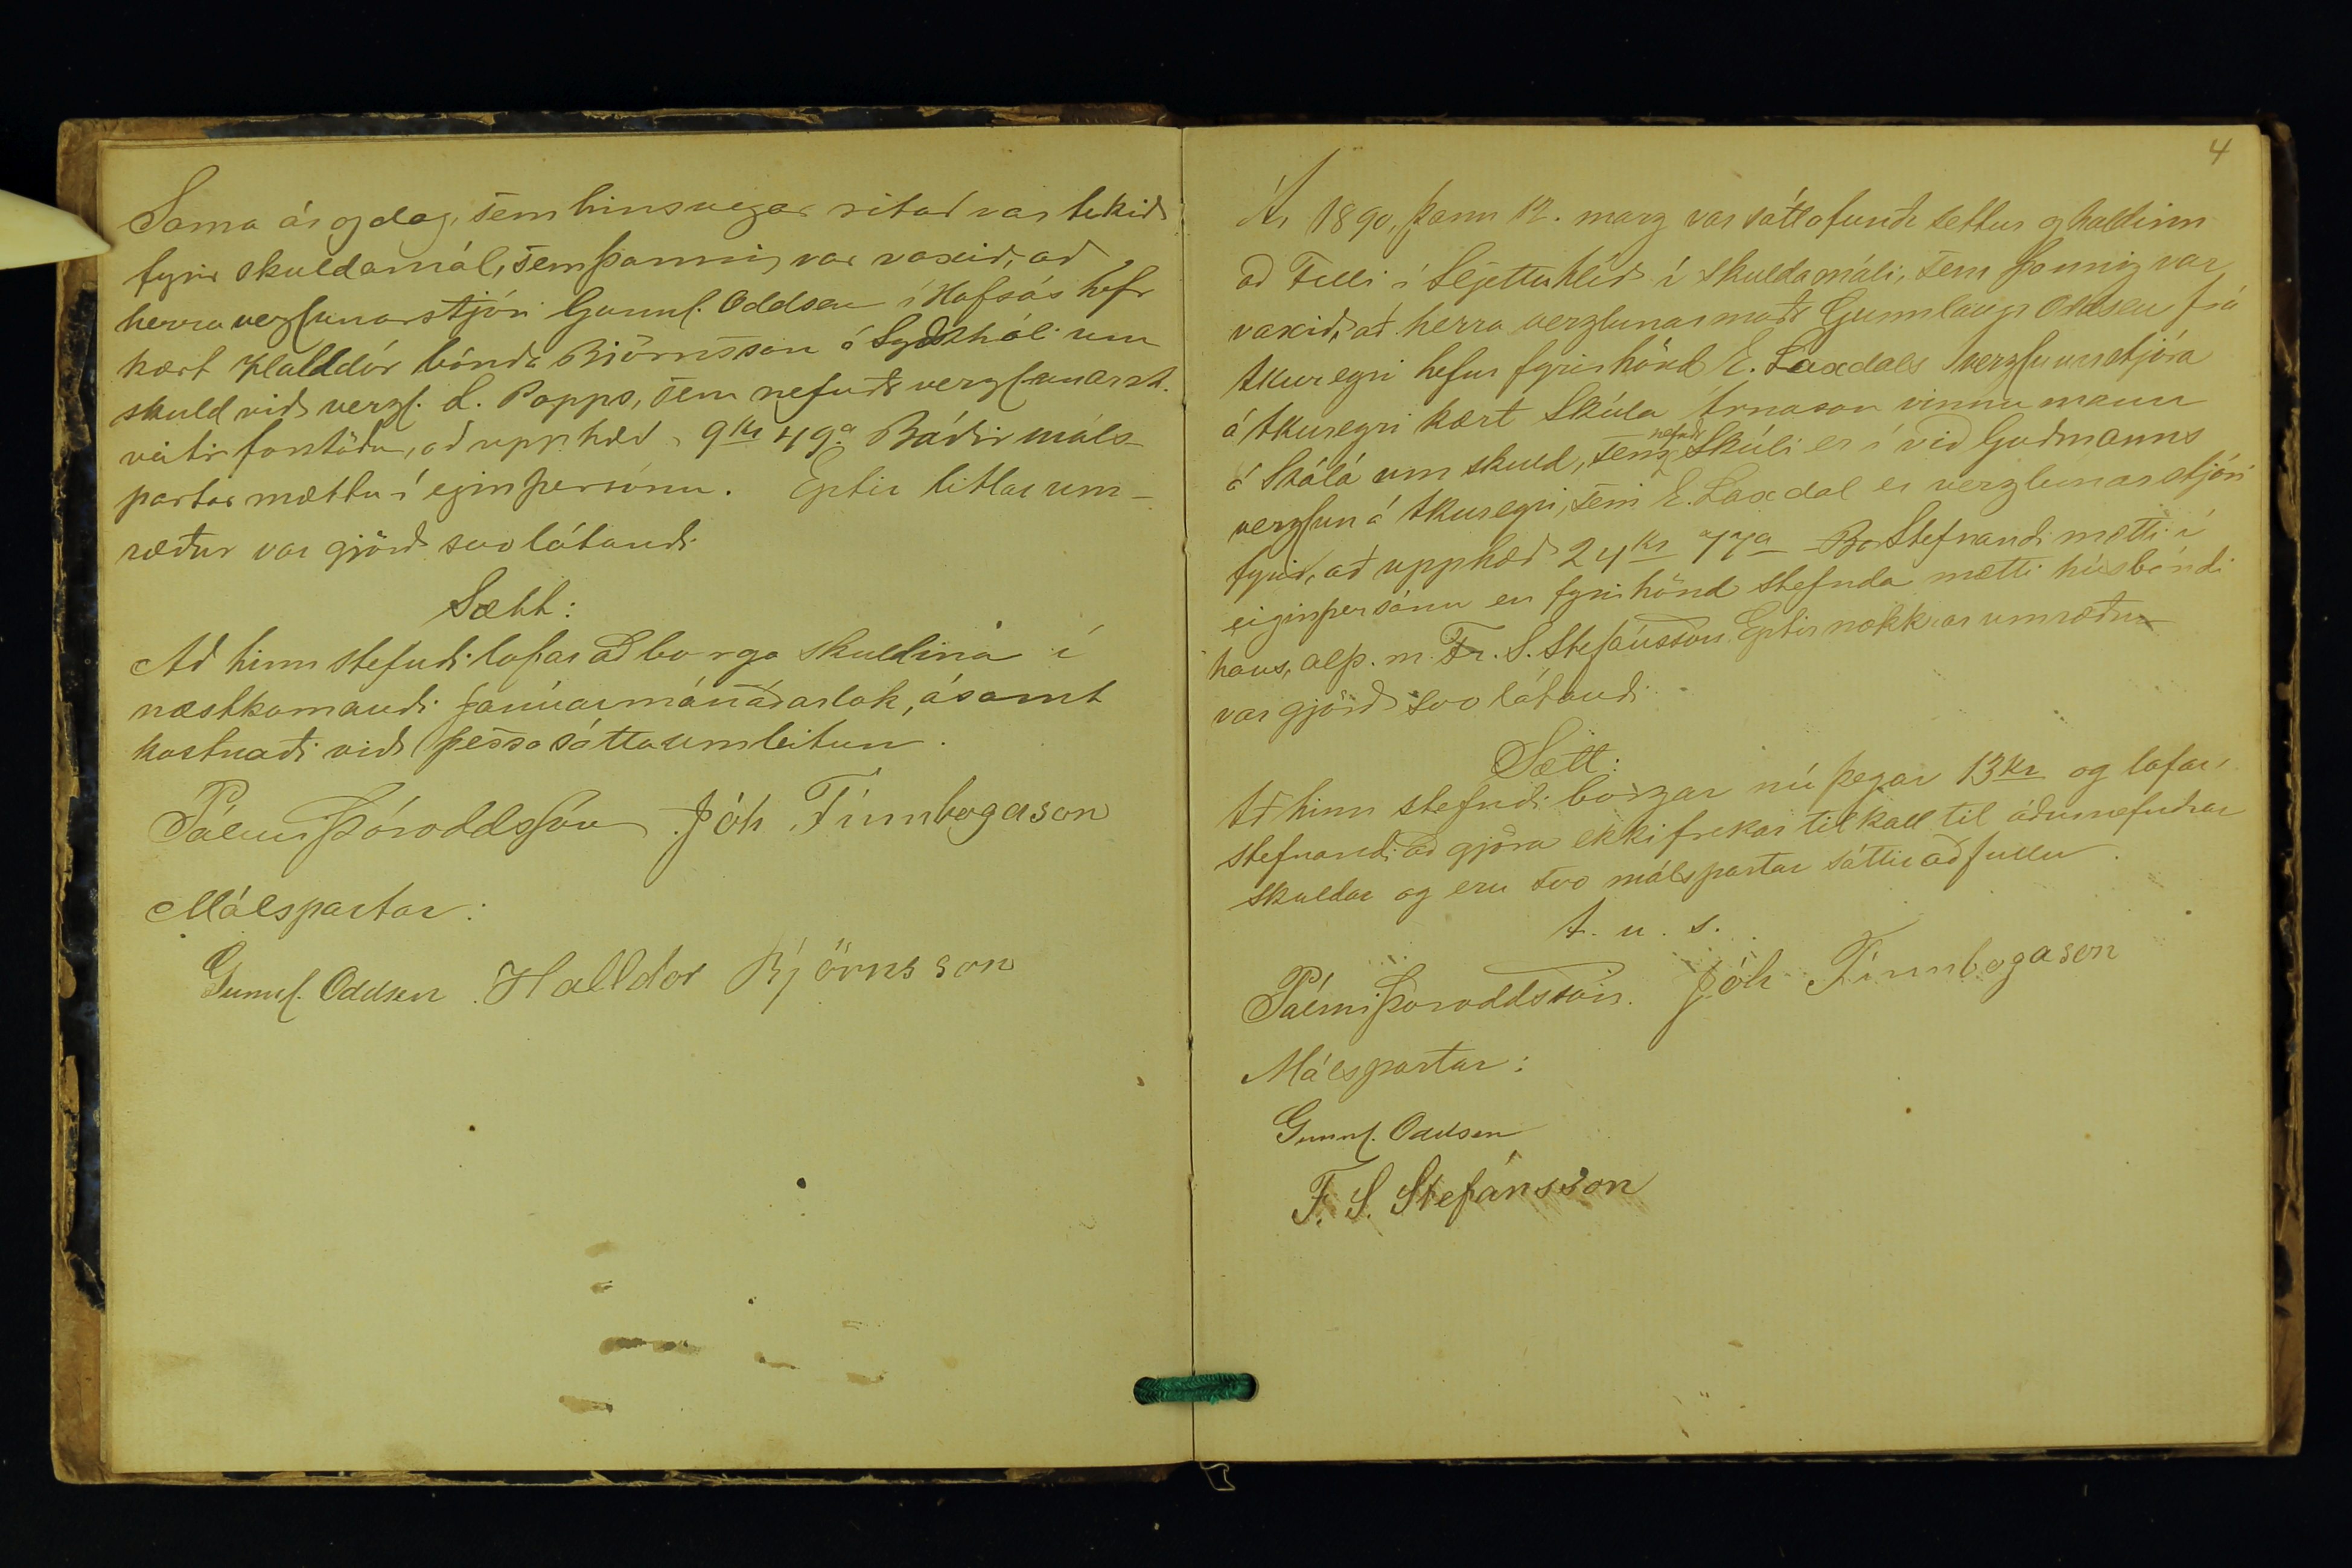 Sama ár og dag, sem hinsvegar ritað var tekið
fyrir skuldamál, sem þannig var vaxið, að
herra verzlunarstjóri Gunnl. Oddsen í Hofsós hefr
kært Halldór bónda Björnsson á Syðsthóli um
skuld við verzl. L. Popps, sem nefndr verzlunarst.
veitir forstöðu, að upphæð 9 kr 49 a Báðir máls-
partar mættu í eigin persónu. Eptir litlar um-
ræður var gjörð svolátandi
Sætt:
Að hinn stefndi lofar að borga skuldina í
næstkomandi janúarmánaðarlok, ásamt
kostnaði við þessa sáttaumleitun.
Pálmi Þóroddsson Jóh Finnbogason
Málspartar:
Gunnl. Oddsen Halldor Björnsson
4
Ár 1890, þann 12. marz var sáttafundr settur og haldinn
að Felli í Sljettuhlíð í skuldamáli, sem þannig var
vaxið, að herra verzlunarmaðr Gunnlaugr Oddsen frá
Akureyri hefur fyrir hönd E. Laxdals verzlunarstjóra
á Akureyri kært Skúla Árnason vinnumann
á Skálá um skuld, sem nefndr Skúli er í við Guðmanns
verzlun á Akureyri, sem E. Laxdal er verzlunarstjóri
fyrir, að upphæð 24 kr 77 a Bo Stefnandi mætti í
eigin persónu en fyrir hönd stefnda mætti húsbóndi
hans, alþ. m. Fr. S. Stefánsson. Eptir nokkrar umræður
var gjörð svolátandi
Sætt:
Að hinn stefndi borgar nú þegar 13 kr og lofar
stefnandi að gjöra ekki frekar tilkall til áðurnefndrar
skuldar og eru svo málspartar sáttir að fullu.
A. u. s.
Pálmi Þoroddsson. Jóh Finnbogason
Málspartar:
Gunnl. Oddsen
F. S. Stefánsson